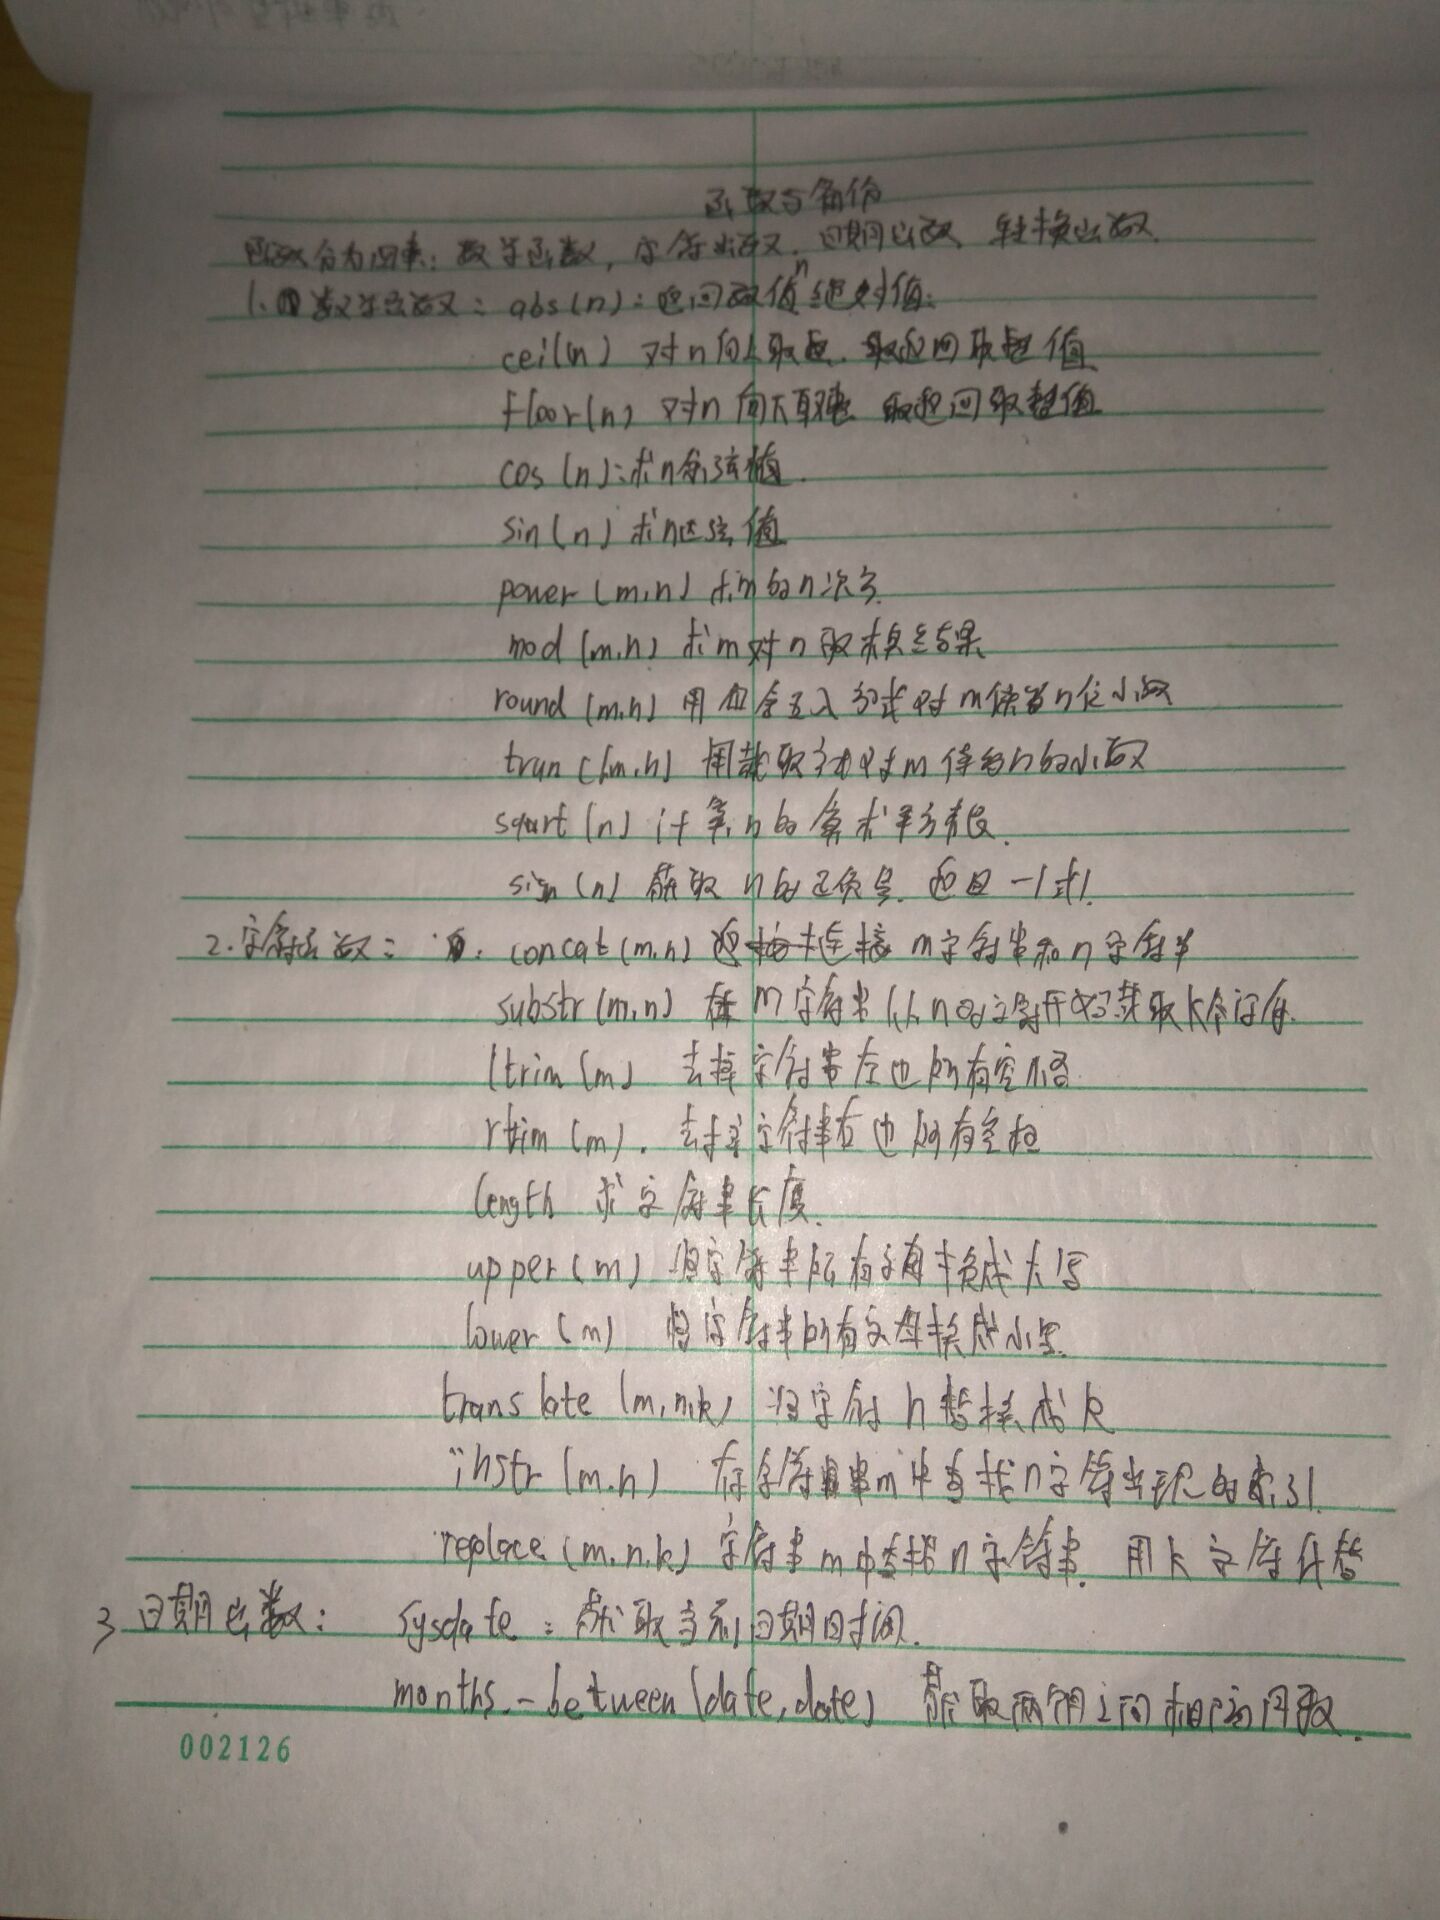 函数与备份
函数分为四类: 数学函数, 字符函数. 日期函数 转换函数.
1. 数学函数: abs(n): 返回数值n绝对值:
ceil(n) 对n向上取整. 返回取整值
floor(n) 对n向下取整 返回取整值
cos(n): 求n余弦值.
sin(n) 求n正弦值
power(m,n) 求m的n次方.
mod(m,n) 求m对n取模之结果
round(m,n) 用四舍五入方式对m保留n位小数
trun c(m,n) 用截取方式对m保留n的小数
sqart(n) 计算n的算术平方根.
sign(n) 获取n的正负号. 返回-1或1.
2.字符函数: concat(m,n) 连接m字符串和n字符串
substr(m,n) 在m字符串从n的字符开始获取k个字符.
ltrim(m) 去掉字符串左边所有空格
rtrim(m). 去掉字符串右边所有空格
length 求字符串长度.
upper(m) 将字符串所有字母换成大写
lower(m) 将字符串所有字母换成小写.
translate(m,n,k) 将字符n替换成k
instr(m,n) 在字符串m中查找n字符出现的索引.
replace(m,n,k) 字符串m中查找n字符串. 用k字符代替
3 日期函数: sysdate: 获取当前日期时间.
months_-between(date,date) 获取两个月之间相隔月数.
002126